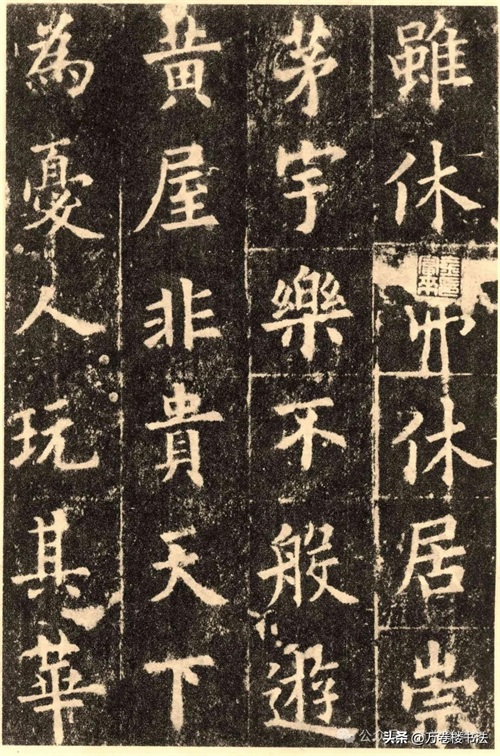 雖休休居崇
茅宇樂不般遊
黄屋非貴天下
為憂人玩其華
头条 @万卷楼书法